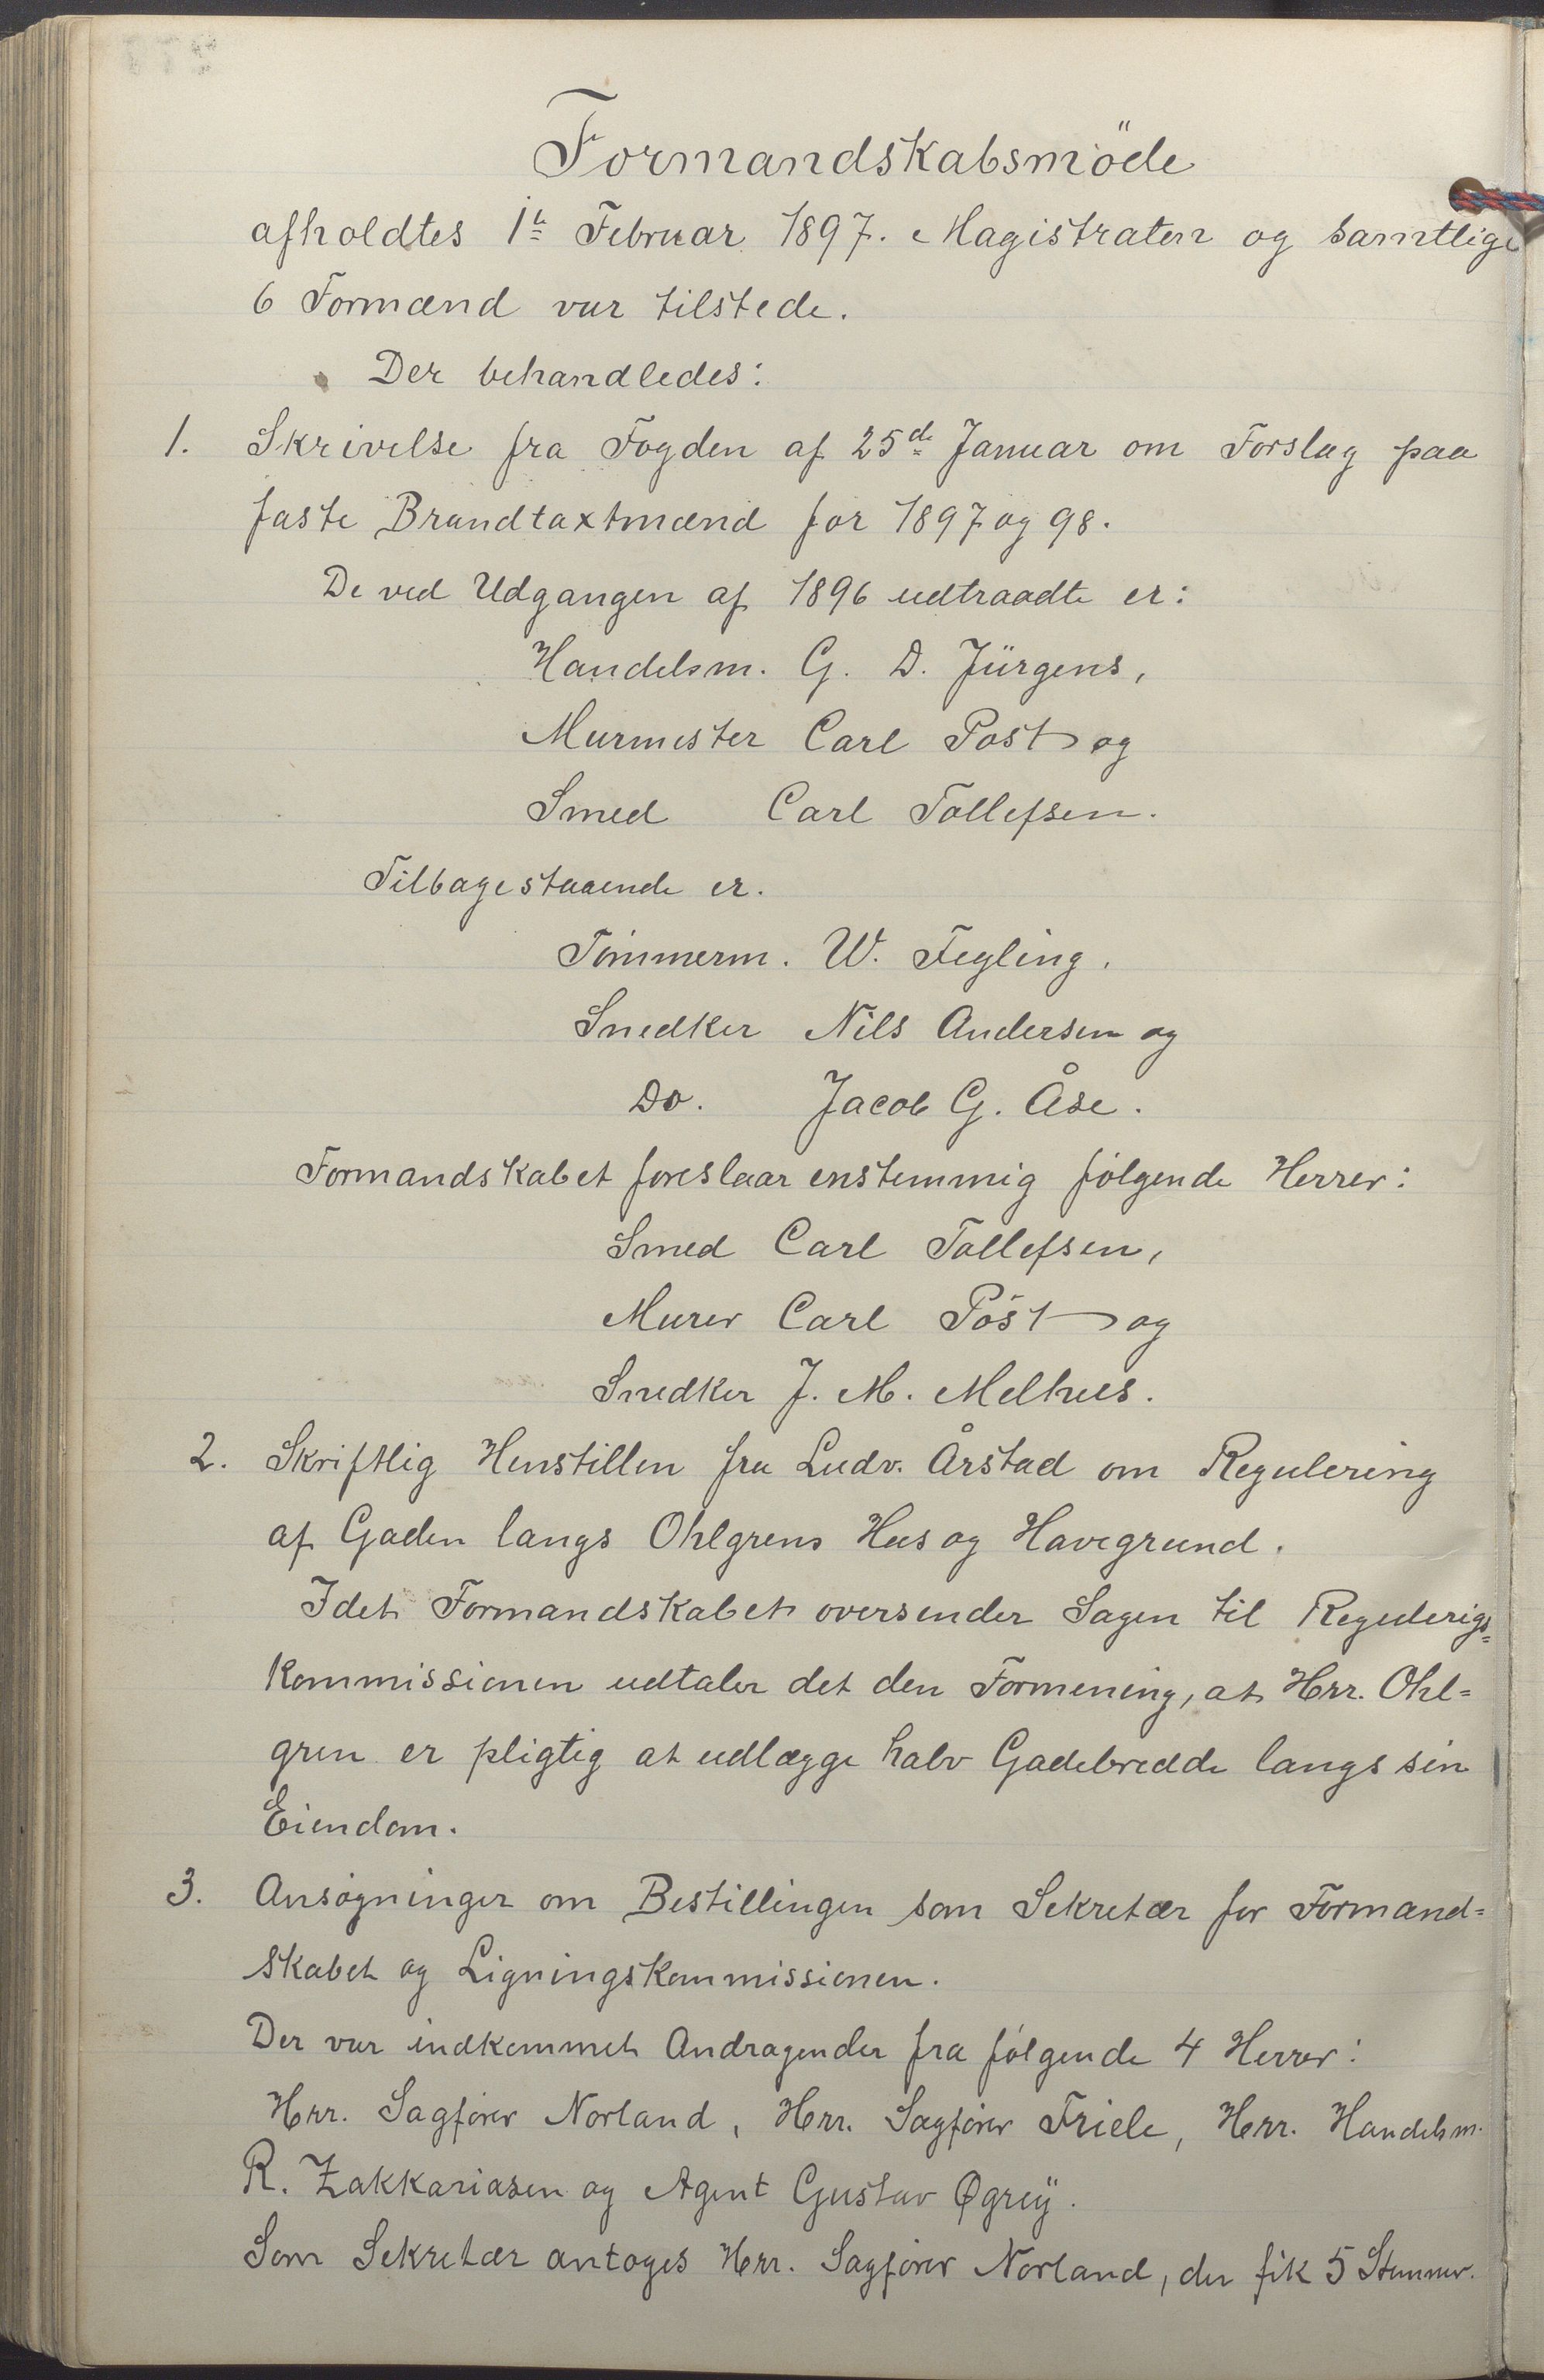 Formandskabsmöde
afholdtes 1te Februar 1897. Magistraten og samtlige
6 Formænd var tilstede.
Der behandledes:
1. Skrivelse fra Fogden af 25de Januar om Forslag paa
faste Brandtaxtmænd for 1897 og 98.
De ved Udgangen af 1896 udtraadte er:
Handelsm. G. D. Jürgens,
Murmester Carl Post og
Smed Carl Tollefsen.
Tilbagestaaende er.
Tömmerm. W. Fegling.
Snedker Nils Andersen og
Do. Jacob G. Åse.
Formandskabet foreslaar enstemmig følgende Herrer:
Smed Carl Tollefsen,
Murer Carl Post og
Snedker J. M. Melhus.
2. Skriftlig Henstillen fra Ludv. Årstad om Regulering
af Gaden langs Ohlgrens Hus og Havegrund.
Idet Formandskabet oversender Sagen til Regulerigs=
kommissionen udtaler det den Formening, at Hrr. Ohl=
gren er pligtig at udlægge halv Gadebredde langs sin
Eiendom.
3. Ansøgninger om Bestillingen som Sekretær for Formand=
skabet og Ligningskommissionen.
Der var indkommet Andragender fra følgende 4 Herrer:
Hrr. Sagfører Norland, Hrr. Sagfører Friele, Herr. Handelsm.
R. Zakkariasen og Agent Gustav Øgreÿ.
Som Sekretær antoges Hrr. Sagfører Norland, der fik 5 Stemmer.